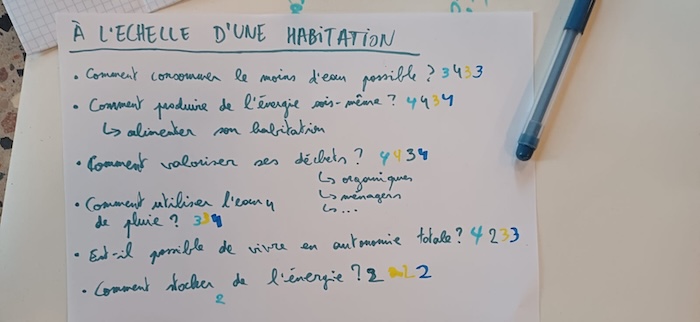 À L'ECHELLE D'UNE HABITATION
• Comment consommer le moins d'eau possible ? 3433
• Comment produire de l'énergie sois-même ? 4434
↳ alimenter son habitation
• Comment valoriser ses déchets ? 4434
↳ organiques
↳ ménagers
↳ ...
• Comment utiliser l'eau
de pluie ? 3
• Est-il possible de vivre en autonomie totale ? 4233
• Comment stocker de l'énergie ? 2 2 2
2